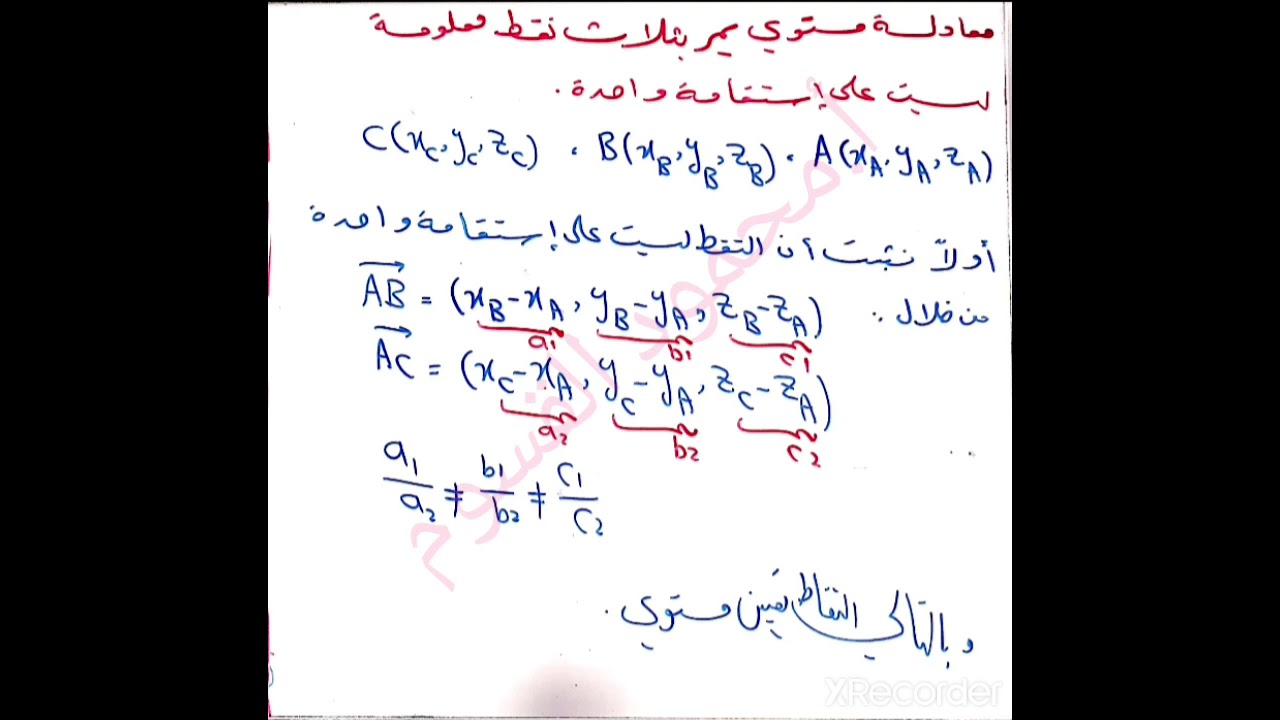 معادلة مستوي يمر بثلاث نقط معلومة
ليست على إستقامة واحدة.
A(x_A, y_A, z_A) . B(x_B, y_B, z_B) . C(x_C, y_C, z_C)
أولاً نثبت أن النقط ليست على إستقامة واحدة
من خلال :.
AB = (x_B-x_A, y_B-y_A, z_B-z_A)
a1 b1 c1
AC = (x_C-x_A, y_C-y_A, z_C-z_A)
a2 b2 c2
a1/a2 ≠ b1/b2 ≠ c1/c2
وبالتالي النقاط تعين مستوي.
أ محمود القسوم
XRecorder